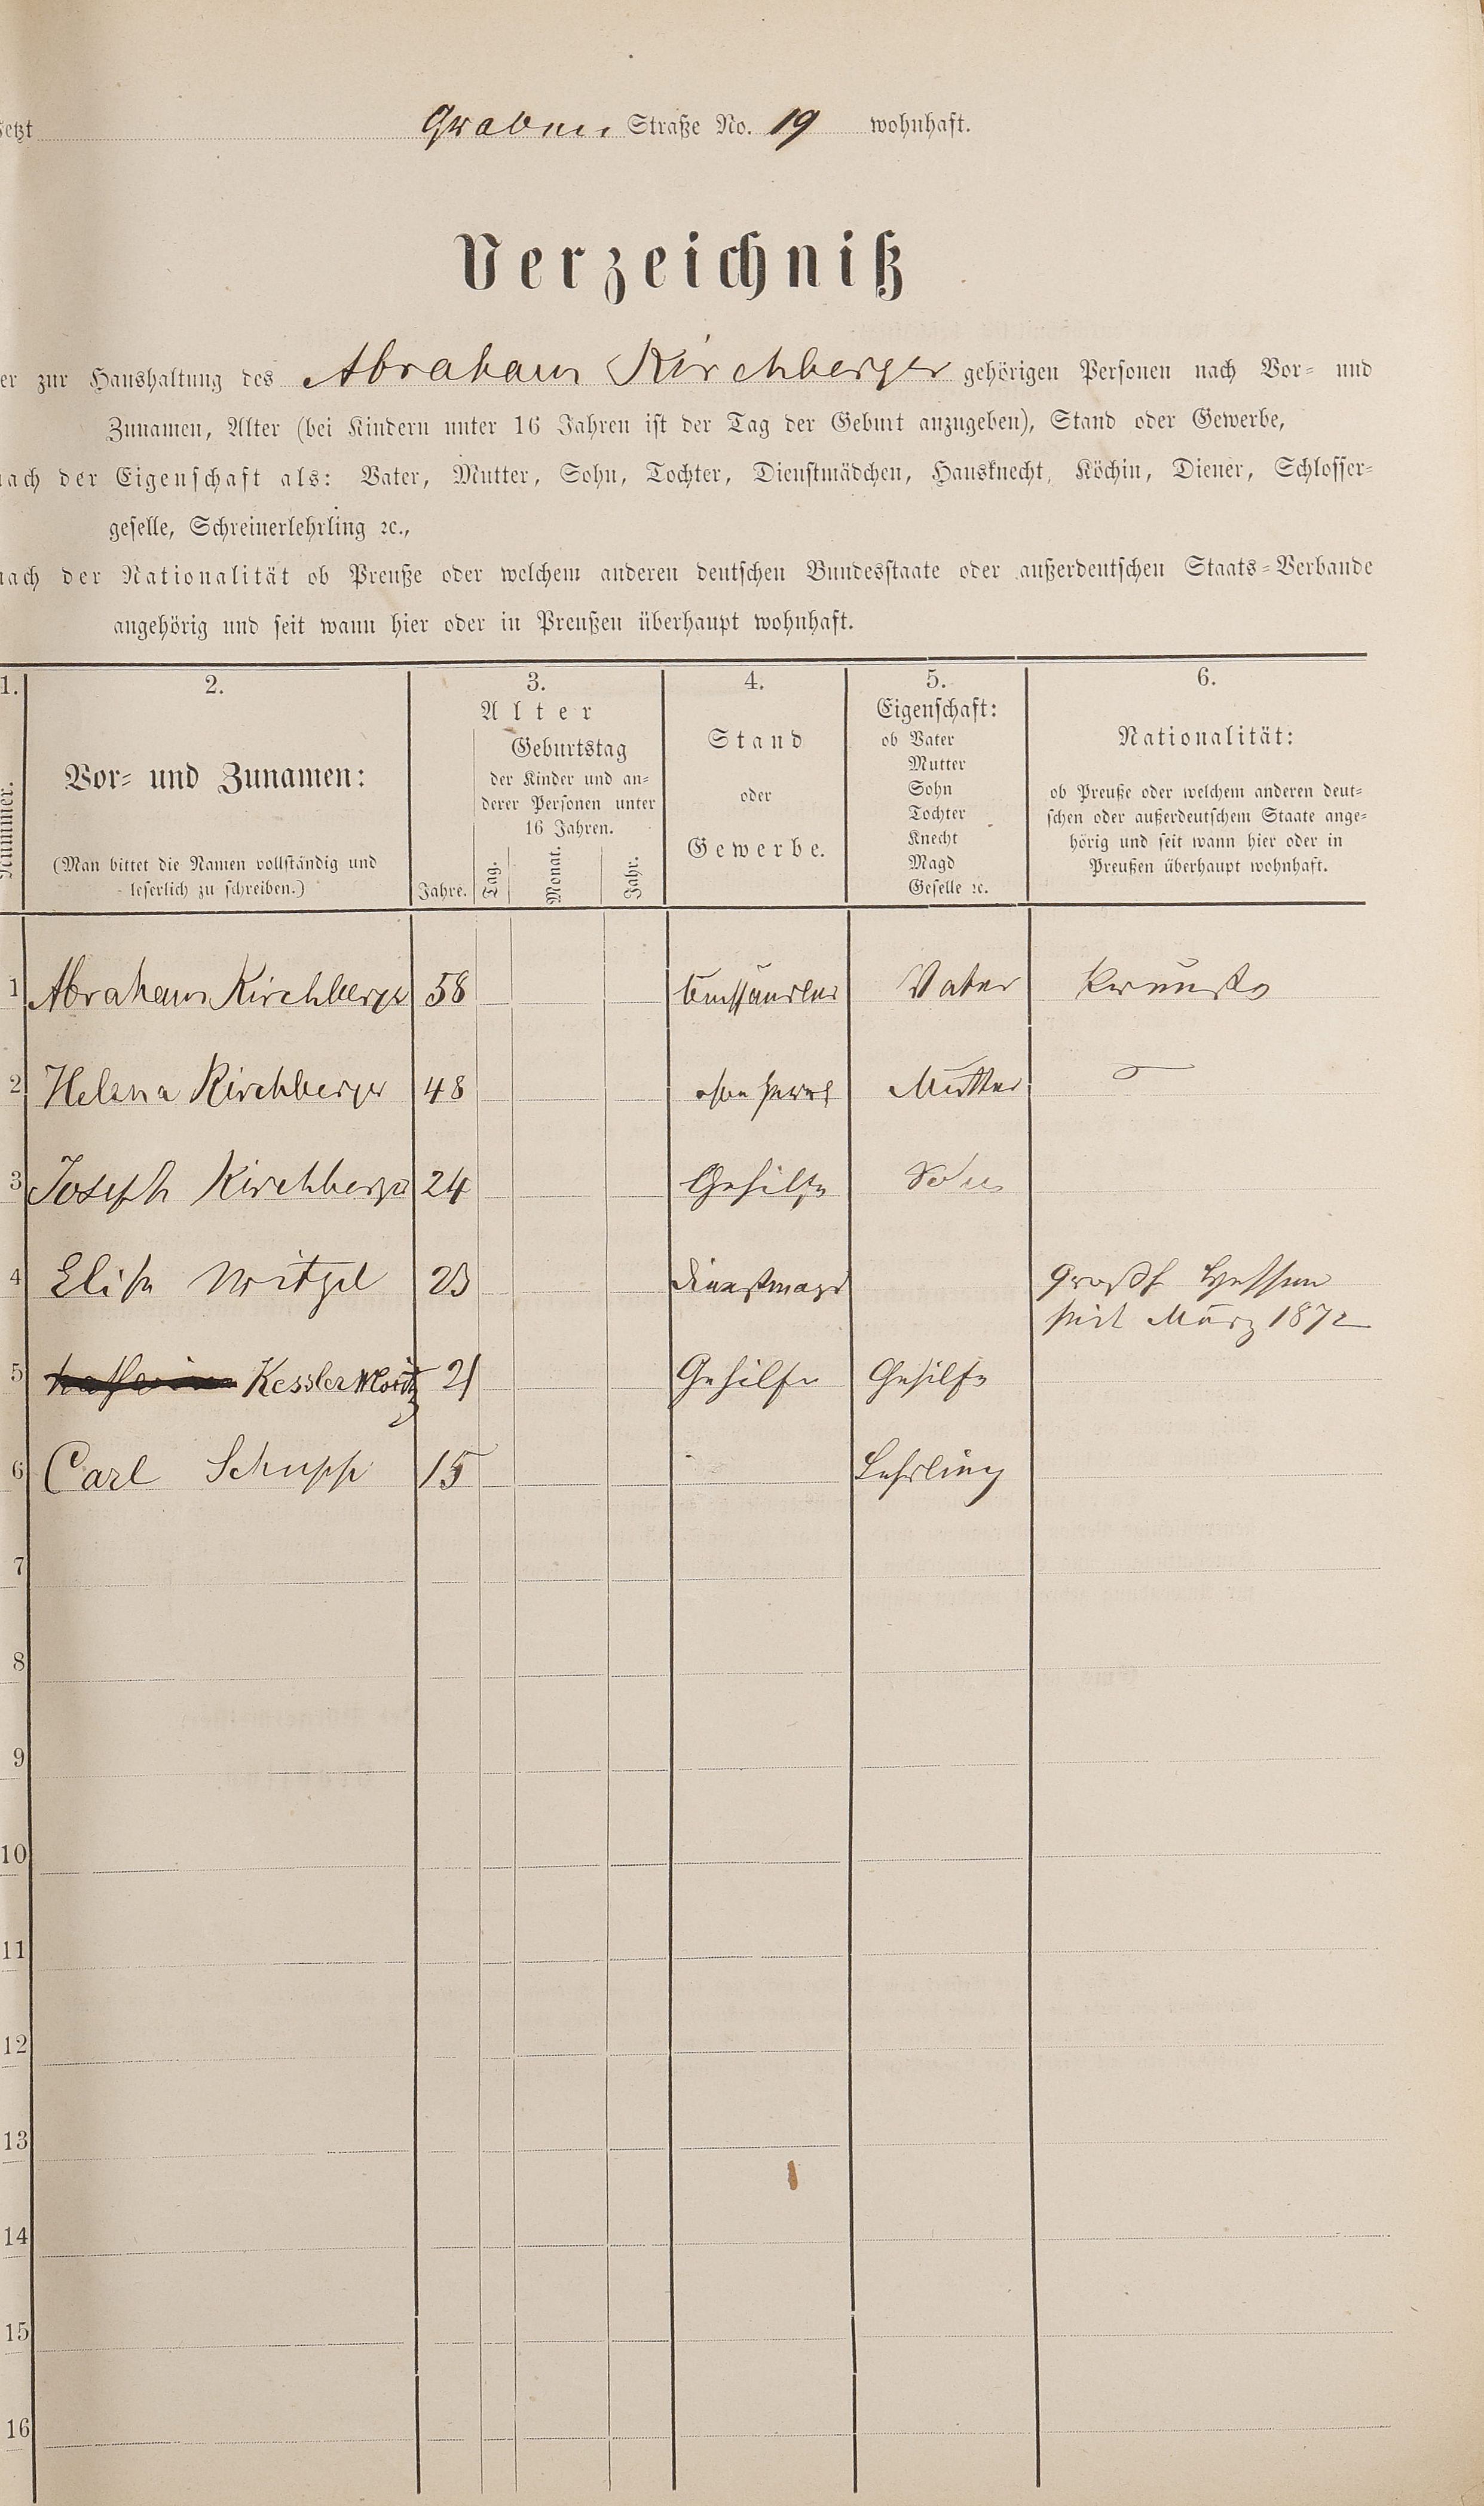 Jetzt Graben Straße No. 19 wohnhaft.
Verzeichniß
er zur Haushaltung des Abraham Kirchberger gehörigen Personen nach Vor- und
Zunamen, Alter (bei Kindern unter 16 Jahren ist der Tag der Geburt anzugeben), Stand oder Gewerbe,
nach der Eigenschaft als: Vater, Mutter, Sohn, Tochter, Dienstmädchen, Hausknecht, Köchin, Diener, Schlosser-
geselle, Schreinerlehrling ꝛc.,
nach der Nationalität ob Preuße oder welchem anderen deutschen Bundesstaate oder außerdeutschen Staats-Verbande
angehörig und seit wann hier oder in Preußen überhaupt wohnhaft.
1. 2. 3. 4. 5. 6.
Nummer.
Vor- und Zunamen:
(Man bittet die Namen vollständig und
leserlich zu schreiben.)
Alter
Jahre.
Geburtstag
der Kinder und an-
derer Personen unter
16 Jahren.
Tag. Monat. Jahr.
Stand
oder
Gewerbe.
Eigenschaft:
ob Vater
Mutter
Sohn
Tochter
Knecht
Magd
Geselle ꝛc.
Nationalität:
ob Preuße oder welchem anderen deut-
schen oder außerdeutschem Staate ange-
hörig und seit wann hier oder in
Preußen überhaupt wohnhaft.
1 Abraham Kirchberger 58 Vater Preuße
2 Helena Kirchberger 48 Mutter
3 Joseph Kirchberger 24 Gehilfe Sohn
4 Elise Witzel 23 Dienstmagd Großh Hessen
seit März 1872
5 Kessler Moritz 21 Gehilfe Gehilfe
6 Carl Schupp 15 Lehrling
7
8
9
10
11
12
13
14
15
16